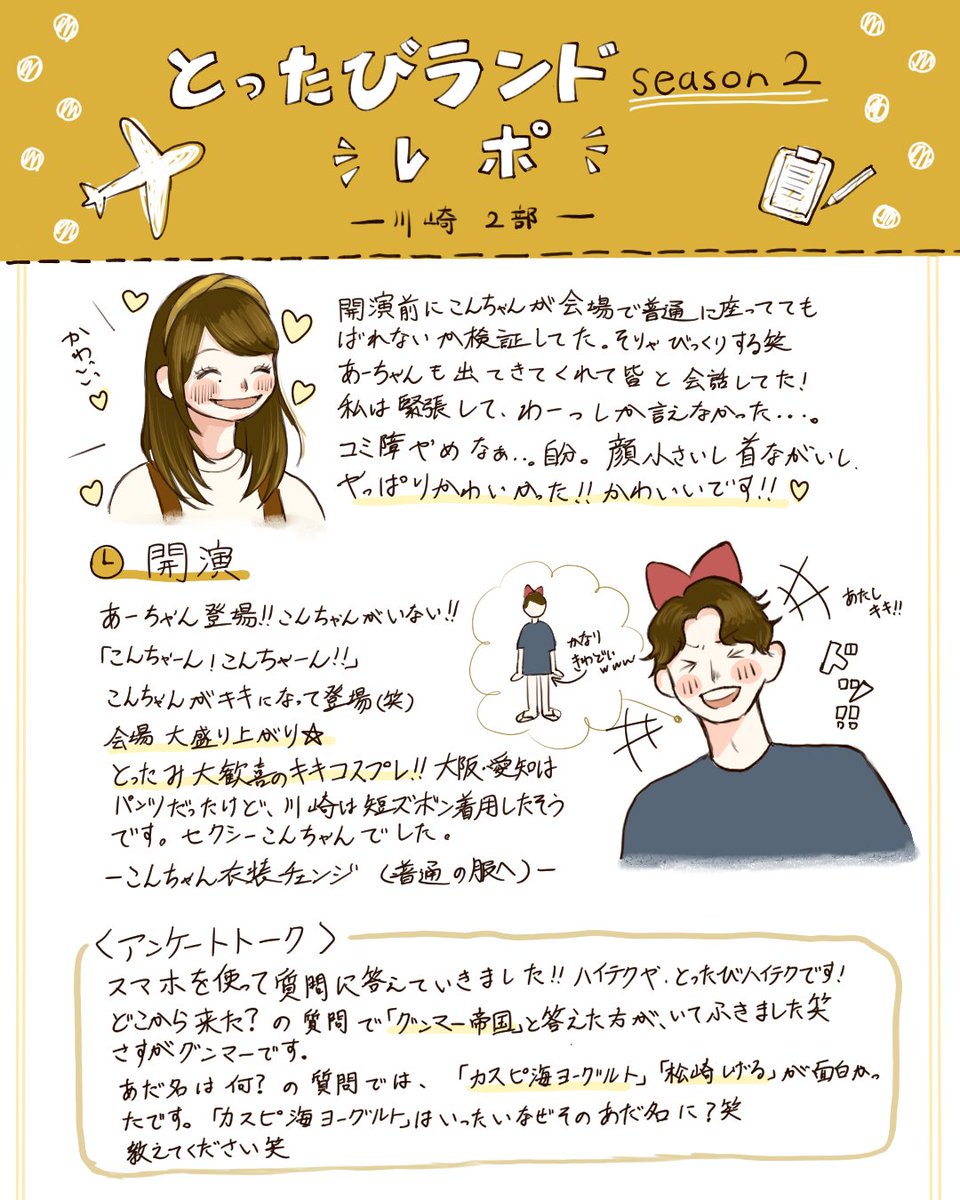 とったびランド season2
レポ
ー川崎 2部ー
かわいい
開演前にこんちゃんが会場で普通に座ってても
ばれないか検証してた。そりゃびっくりする笑
あーちゃんも出てきてくれて皆と会話してた!
私は緊張して、わーっしか言えなかった...。
コミ障やめなぁ..。自分。顔小さいし首ながいし、
やっぱりかわいかった!!かわいいです!!
開演
あーちゃん登場!!こんちゃんがいない!!
「こんちゃーん!こんちゃーん!!」
こんちゃんがキキになって登場(笑)
会場 大盛り上がり☆
とったみ大歓喜のキキコスプレ!!大阪・愛知は
パンツだったけど、川崎は短ズボン着用したそう
です。セクシーこんちゃんでした。
ーこんちゃん衣装チェンジ (普通の服へ)ー
かなり
きわどいwww
あたし
キキ!!
ドンッ!!
〈アンケートトーク〉
スマホを使って質問に答えていきました!!ハイテクや、とったびハイテクです!
どこから来た?の質問で「グンマー帝国」と答えた方が、いてふきました笑
さすがグンマーです.
あだ名は何?の質問では、「カスピ海ヨーグルト」「松崎しげる」が面白かっ
たです。「カスピ海ヨーグルト」はいったいなぜそのあだ名に?笑
教えてください笑